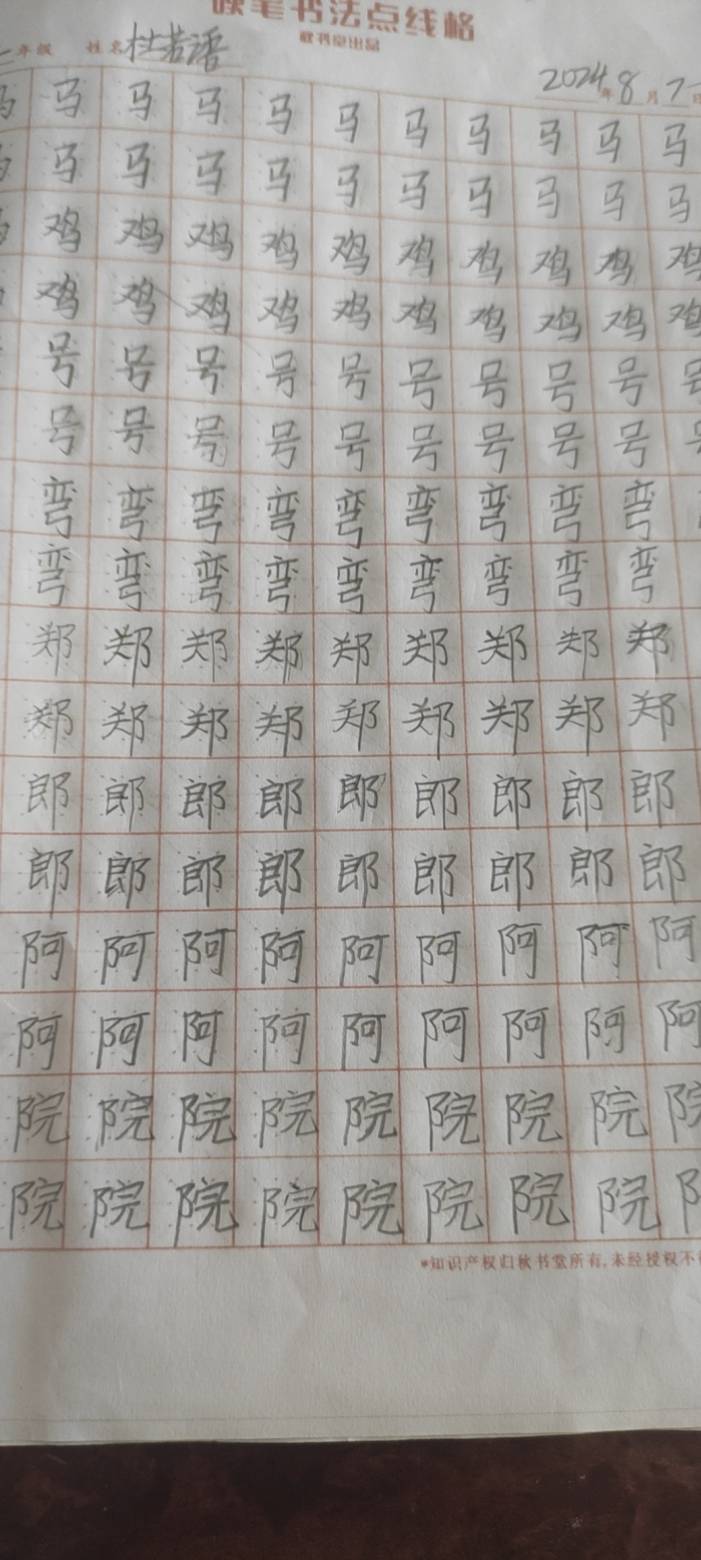 硬笔书法点线格
秋书堂出品
年级 姓名 杜若语
2024年8月7日
马 马 马 马 马 马 马 马 马 马 马
马 马 马 马 马 马 马 马 马 马 马
鸡 鸡 鸡 鸡 鸡 鸡 鸡 鸡 鸡 鸡
鸡 鸡 鸡 鸡 鸡 鸡 鸡 鸡 鸡 鸡
号 号 号 号 号 号 号 号 号 号
号 号 号 号 号 号 号 号 号 号
弯 弯 弯 弯 弯 弯 弯 弯 弯
弯 弯 弯 弯 弯 弯 弯 弯 弯
郑 郑 郑 郑 郑 郑 郑 郑 郑
郑 郑 郑 郑 郑 郑 郑 郑 郑
郎 郎 郎 郎 郎 郎 郎 郎 郎
郎 郎 郎 郎 郎 郎 郎 郎 郎
阿 阿 阿 阿 阿 阿 阿 阿 阿
阿 阿 阿 阿 阿 阿 阿 阿 阿
院 院 院 院 院 院 院 院 院
院 院 院 院 院 院 院 院 院
*知识产权归秋书堂所有,未经授权不